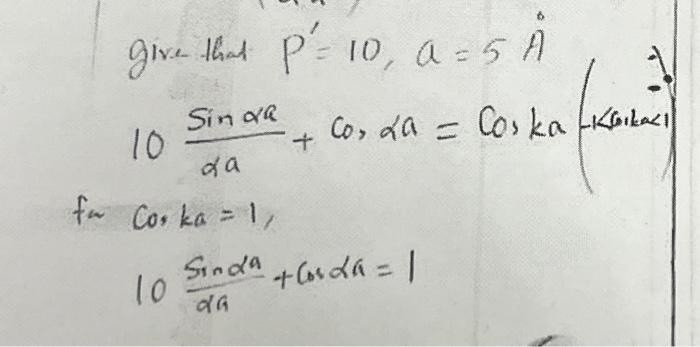 given that P' = 10, a = 5 Å
10 Sin αa / αa + Cos αa = Cos ka (-1<Cos ka<1
for Cos ka = 1,
10 Sin αa / αa + Cos αa = 1